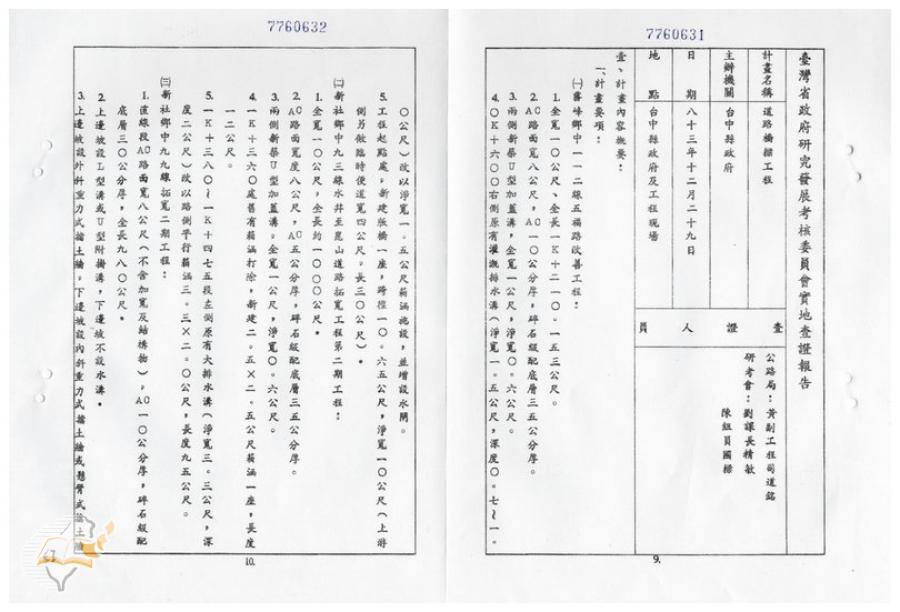 7760631
臺灣省政府研究發展考核委員會實地查證報告
計畫名稱 道路橋樑工程
主辦機關 台中縣政府
日期 八十三年十二月二十九日
地點 台中縣政府及工程現場
查證人員
公路局：黃副工程司道銘
研考會：劉課長精敏
陳組員國樑
壹、計畫內容概要：
一、計畫要項：
㈠霧峰鄉中一一二線五福路改善工程：
1.全寬一〇公尺、全長一K＋二一〇．一五三公尺。
2.AC路面寬八公尺，AC一〇公分厚，碎石級配底層三五公分厚。
3.兩側新築U型加蓋溝，全寬一公尺，淨寬〇．六公尺。
4.〇K＋六〇〇右側原有灌溉排水溝（淨寬一．五公尺，深度〇．七～一．
9.
7760632
〇公尺）改以淨寬一．五公尺箱涵施設，並增設水閘。
5.工程起點處，新建版橋一座，跨徑一〇．六五公尺，淨寬一〇公尺（上游
側另做臨時便道寬四公尺，長三〇公尺）。
㈡新社鄉中九三線水井至崑山道路拓寬工程第二期工程：
1.全寬一〇公尺，全長約一〇〇〇公尺。
2.AC路面寬度八公尺，AC五公分厚，碎石級配底層三五公分厚。
3.兩側新築U型加蓋溝。全寬一公尺，淨寬〇．六公尺。
4.一K＋三六〇處舊有箱涵打除，新建二．五×二．五公尺箱涵一座，長度
一二公尺。
5.一K＋三八〇～一K＋四七五段左側原有大排水溝（淨寬三．三公尺，深
度二公尺）改以路側平行箱涵三．三×二．〇公尺，長度九五公尺。
㈢新社鄉中九九線拓寬二期工程：
1.直線段AC路面寬八公尺（不含加寬及結構物），AC一〇公分厚，碎石級配
底層三〇公分厚，全長九八〇公尺。
2.上邊坡設L型溝或U型附掛溝，下邊坡不設水溝。
3.上邊坡設外斜重力式擋土牆。下邊坡設內斜重力式擋土牆或懸臂式擋土牆
10.